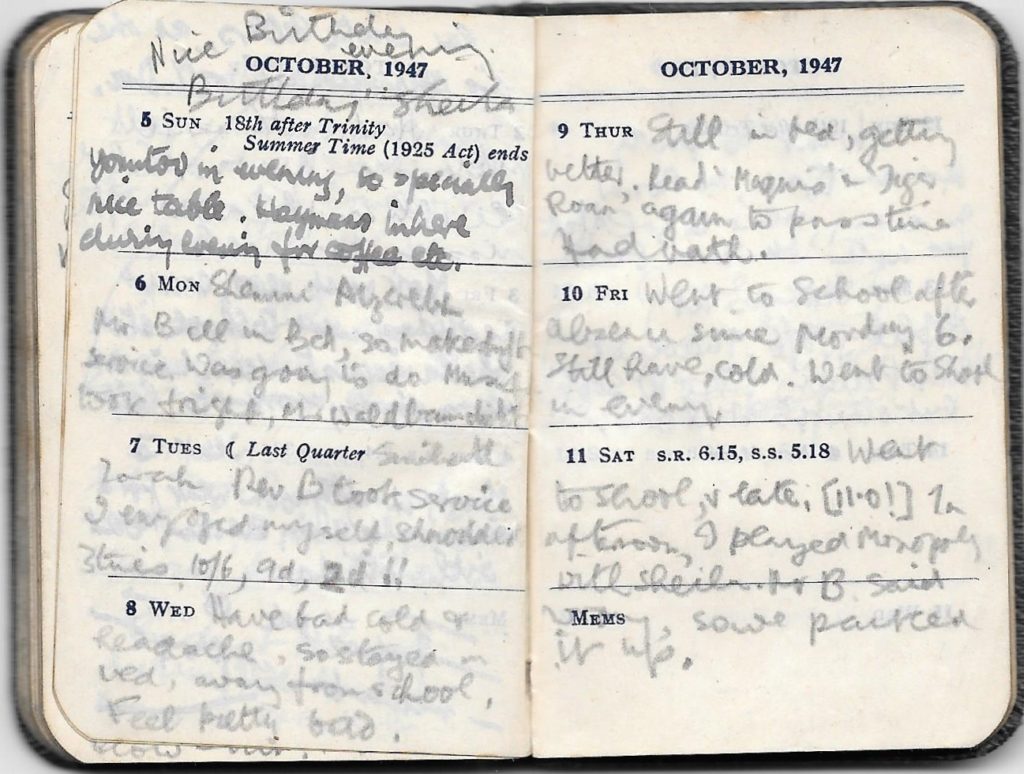 Nice Birthday
evening.
OCTOBER, 1947
Birthday Sheila
5 SUN 18th after Trinity
Summer Time (1925 Act) ends
yomtov in evening, so specially
nice table. Haymans in here
during evening for coffee etc.
6 MON Shemini
Mr B ill in Bed, so makeshift
service was going to do
took fright, Mr
7 TUES ☾ Last Quarter
Rev B took service
I enjoyed myself,
3 10/6, 9d, 2d !!
8 WED Have bad cold &
headache, so stayed in
bed, away from school.
Feel pretty bad.
OCTOBER, 1947
9 THUR Still in bed, getting
better. Read 'Magnus' & Tiger
Roar, again to pass time
Had bath.
10 FRI Went to School after
absence since Monday 6.
Still have cold. Went to Shool
in evening
11 SAT S.R. 6.15, S.S. 5.18 Went
to Shool, v late, [11.0!] In
afternoon, I played Monopoly
with Sheila. Mr B. said
MEMS
so we packed
it up.